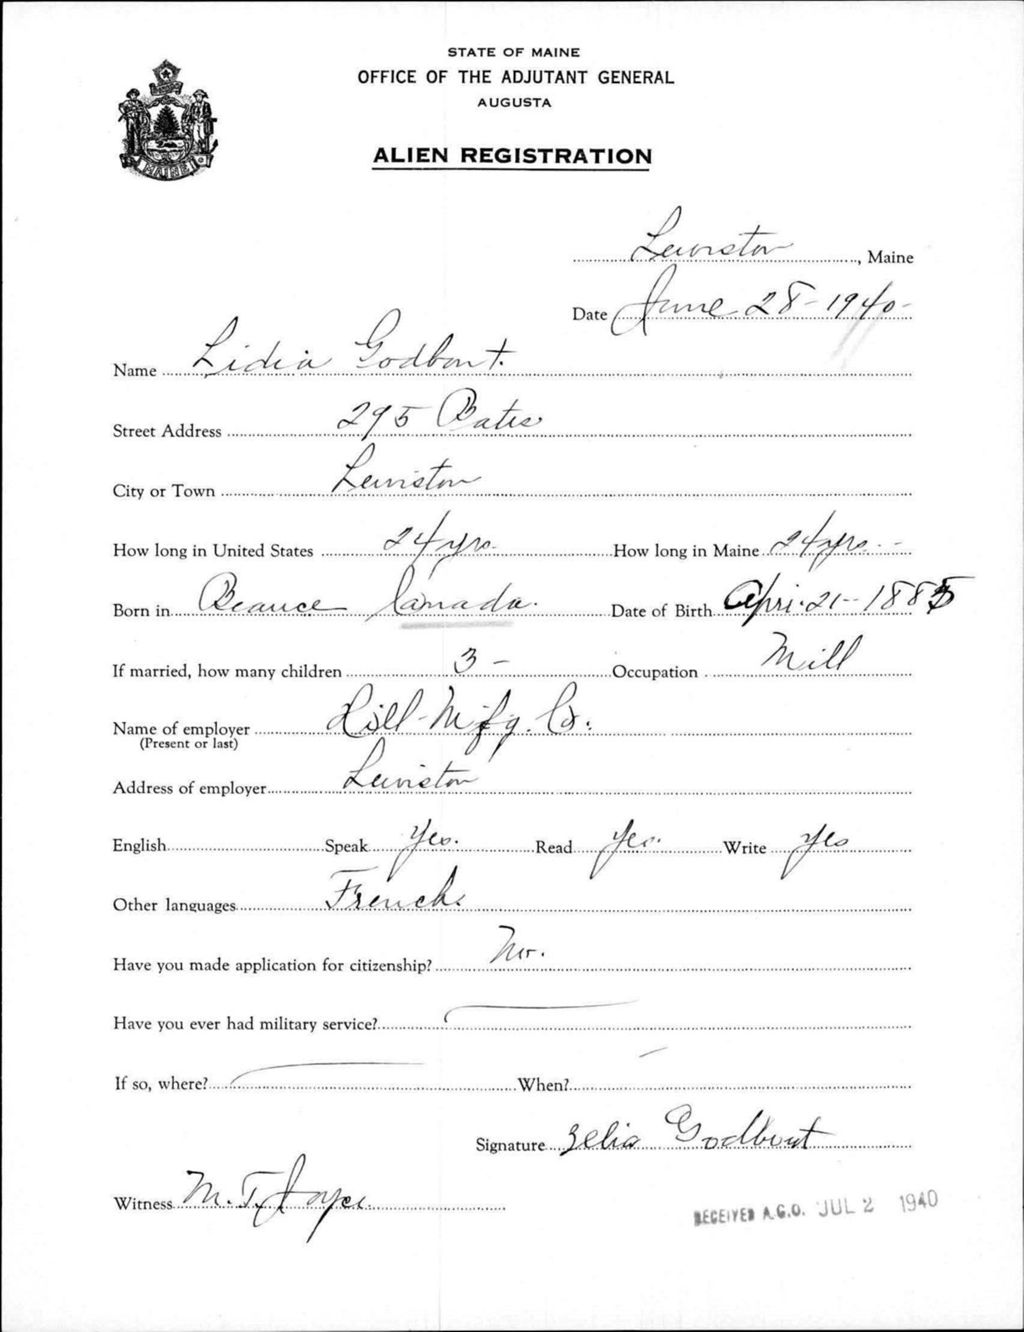 STATE OF MAINE
OFFICE OF THE ADJUTANT GENERAL
AUGUSTA
ALIEN REGISTRATION
MAINE
Lewiston, Maine
Date June 28 - 1940 -
Name Lidia Godbout.
Street Address 295 Bates
City or Town Lewiston
How long in United States 24 yrs. How long in Maine 24 yrs. -
Born in Beauce Canada. Date of Birth Apri. 21 - 1885
If married, how many children 3 - Occupation Mill
Name of employer Hill Mfg. Co.
(Present or last)
Address of employer Lewiston
English Speak Yes. Read Yes. Write Yes
Other languages French.
Have you made application for citizenship? No.
Have you ever had military service? —
If so, where? — When? —
Signature Zelia Godbout
Witness M. T. Joyce.
RECEIVED A.G.O. JUL 2 1940